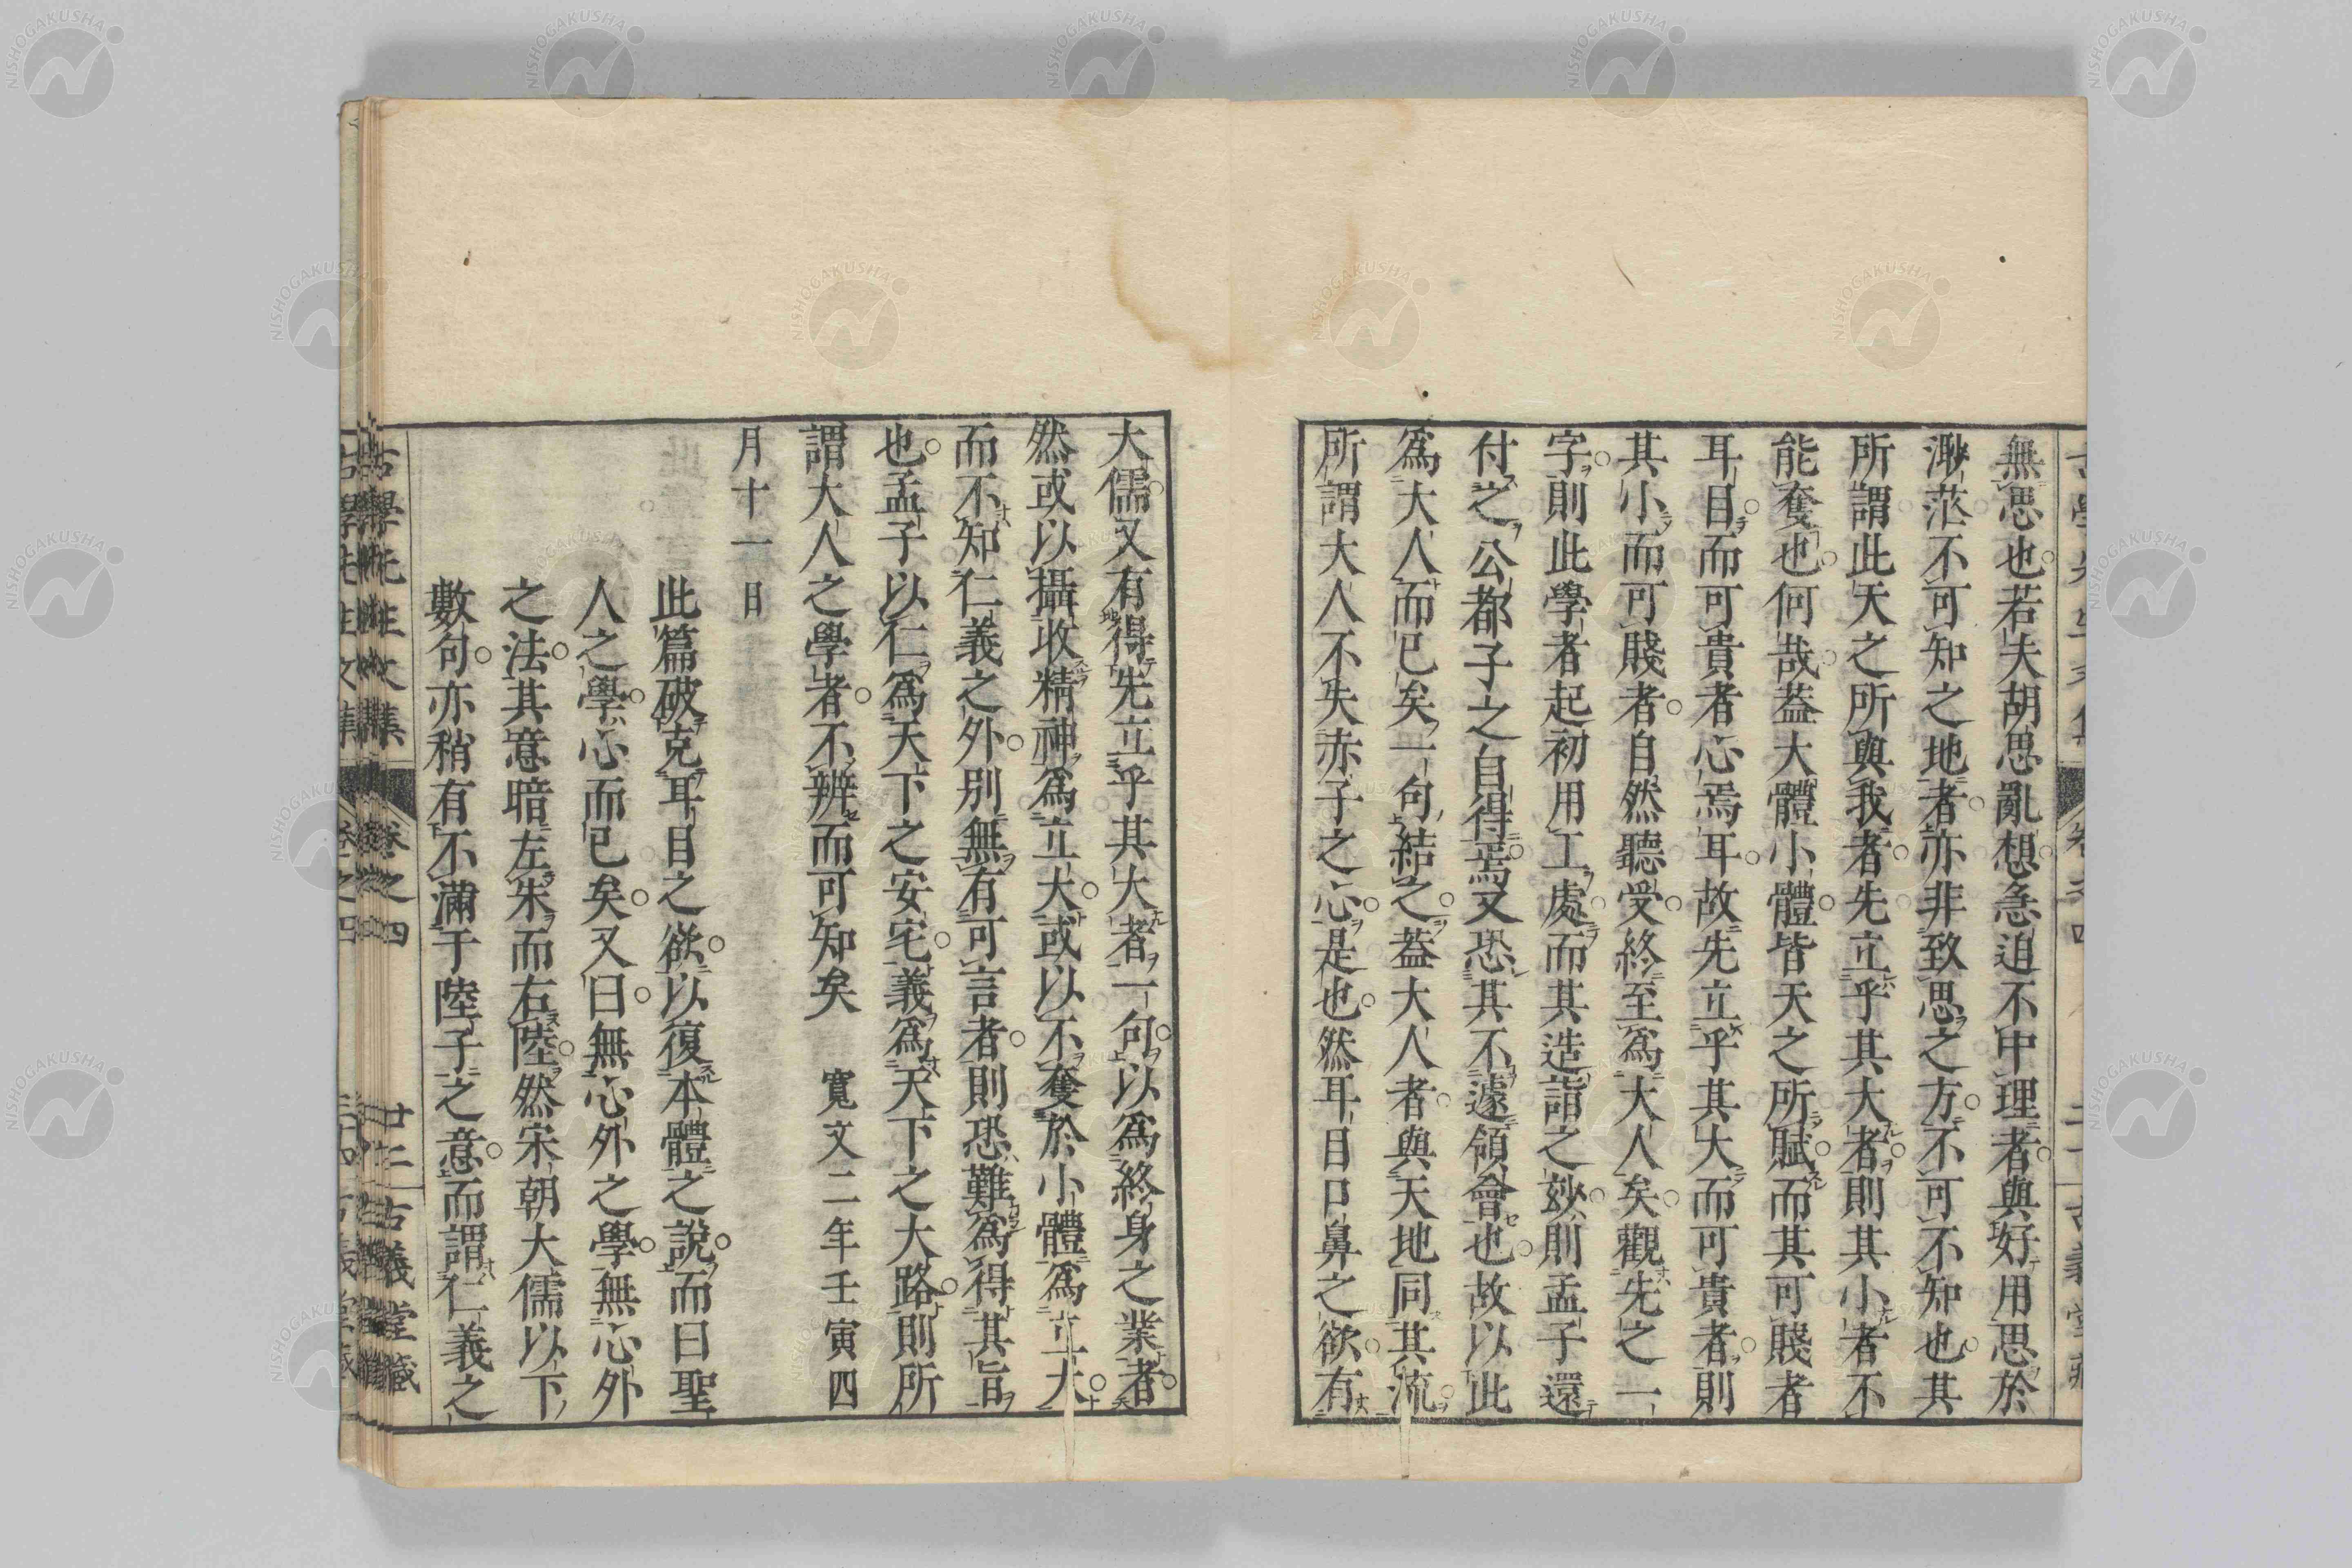 無思也若夫胡思亂想急迫不中理者與好用思於
渺茫不可知之地者亦非致思之方不可不知也其
所謂此天之所與我者先立乎其大者則其小者不
能奪也何哉葢大體小體皆天之所賦而其可賤者
耳目而可貴者心焉耳故先立乎其大而可貴者則
其小而可賤者自然聽受終至為大人矣觀先之一
字則此學者起初用工處而其造詣之妙則孟子還
付之公都子之自得焉又恐其不遽領會也故以此
為大人而已矣一句結之葢大人者與天地同其流
所謂大人不失赤子之心是也然耳目口鼻之欲有
大儒又有得先立乎其大者一句以為終身之業者
然或以攝收精神為立大或以不奪於小體為立大
而不知仁義之外別無有可言者則恐難為得其旨
也孟子以仁為天下之安宅義為天下之大路則所
謂大人之學者不辨而可知矣 寬文二年壬寅四
月十一日
此篇破克耳目之欲以復本體之說而曰聖
人之學心而已矣又曰無心外之學無心外
之法其意暗左朱而右陸然宋朝大儒以下
數句亦稍有不滿于陸子之意而謂仁義之
古學先生文集 卷之四 廿三 古義堂藏
NISHOGAKUSHA